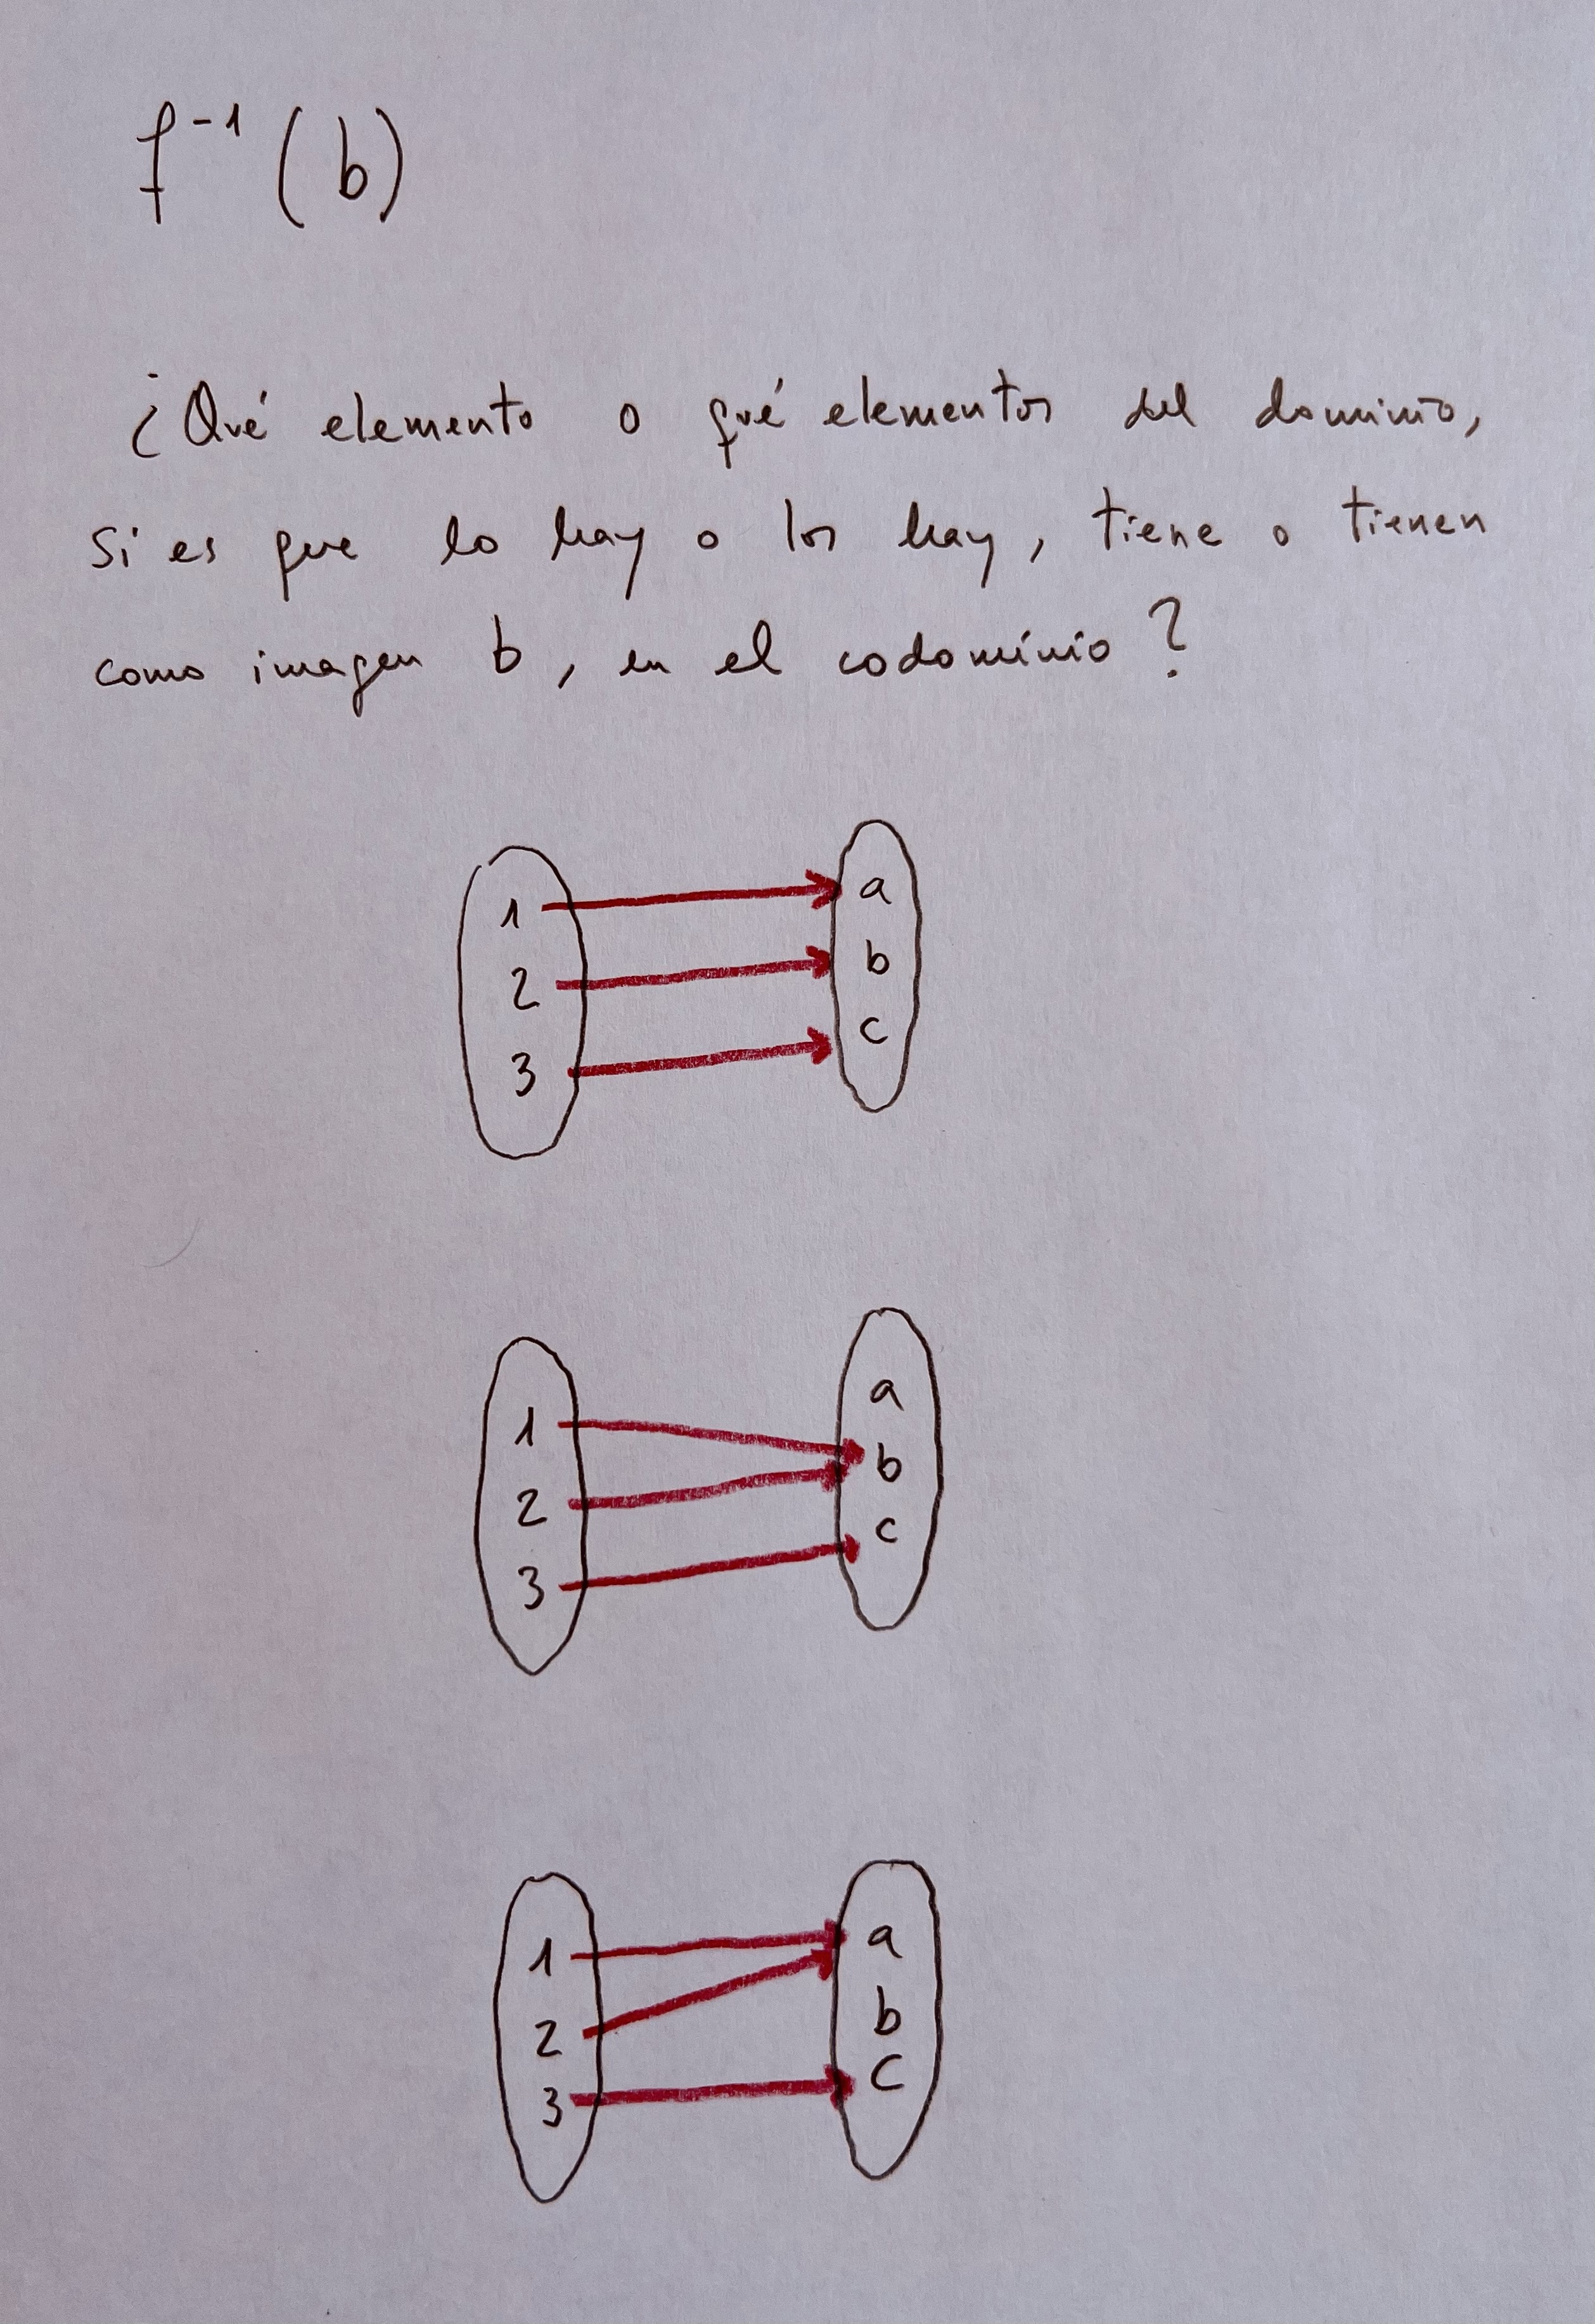 f⁻¹ (b)
¿Qué elemento o qué elementos del dominio,
si es que lo hay o los hay, tiene o tienen
como imagen b, en el codominio?
1
2
3
a
b
c
1
2
3
a
b
c
1
2
3
a
b
c